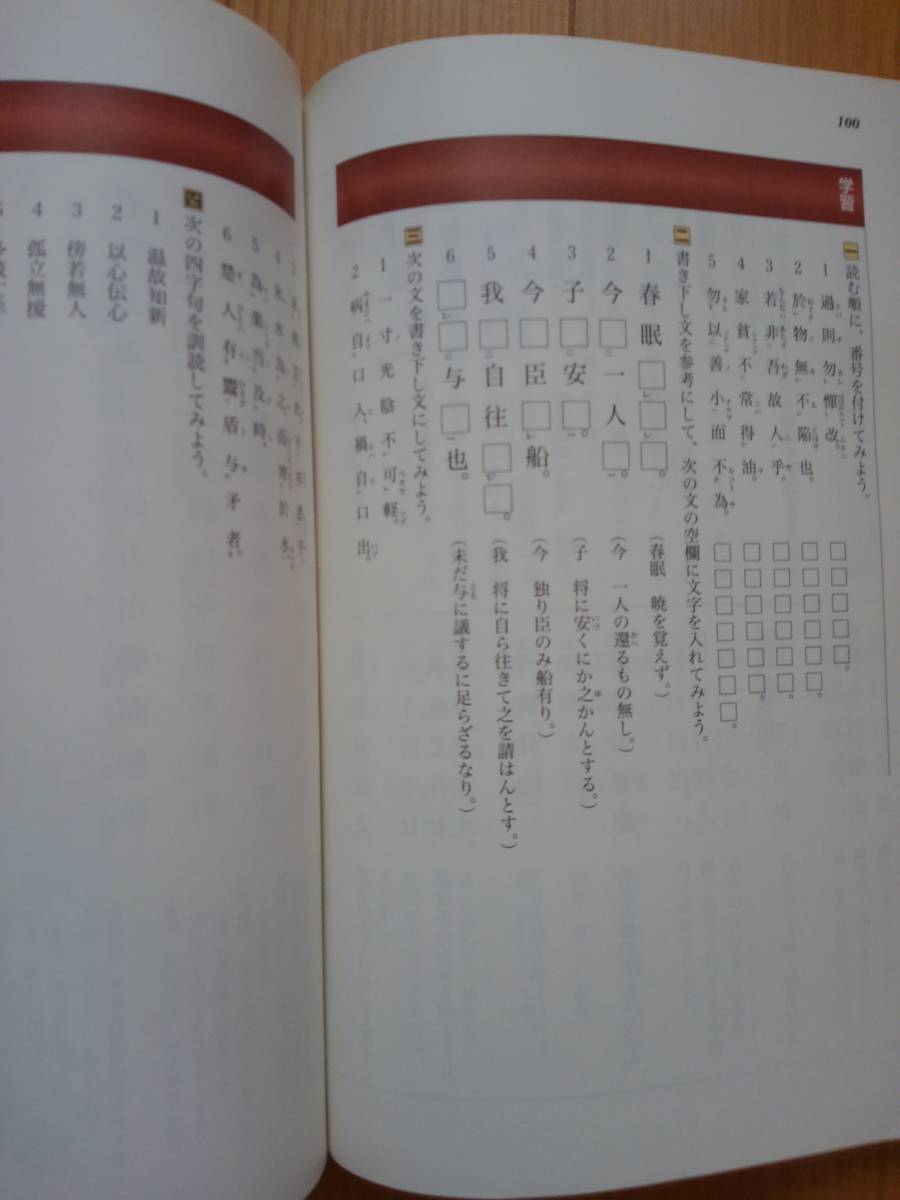 100
学習
一 読む順に、番号を付けてみよう。
1 過則勿憚改。 □□□□□。
2 於物無不陥也。 □□□□□□。
3 若非吾故人乎。 □□□□□□。
4 家貧不常得油。 □□□□□□。
5 勿以善小而不為。 □□□□□□□。
二 書き下し文を参考にして、次の文の空欄に文字を入れてみよう。
1 春眠□レ□レ□。 (春眠 暁を覚えず。)
2 今□二一人□一。 (今 一人の還るもの無し。)
3 子□二安□一。 (子 将に安くにか之かんとする。)
4 今□臣□レ船。 (今 独り臣のみ船有り。)
5 我□自往□レ□。 (我 将に自ら往きて之を請はんとす。)
6 □レ□二与□一也。 (未だ与に議するに足らざるなり。)
三 次の文を書き下し文にしてみよう。
1 一寸光陰不可軽。
2 病自口入、禍自口出。
4 氷水為之而寒於水
5 為楽当及時。
6 楚人有鬻盾与矛者。
四 次の四字句を訓読してみよう。
1 温故知新
2 以心伝心
3 傍若無人
4 孤立無援